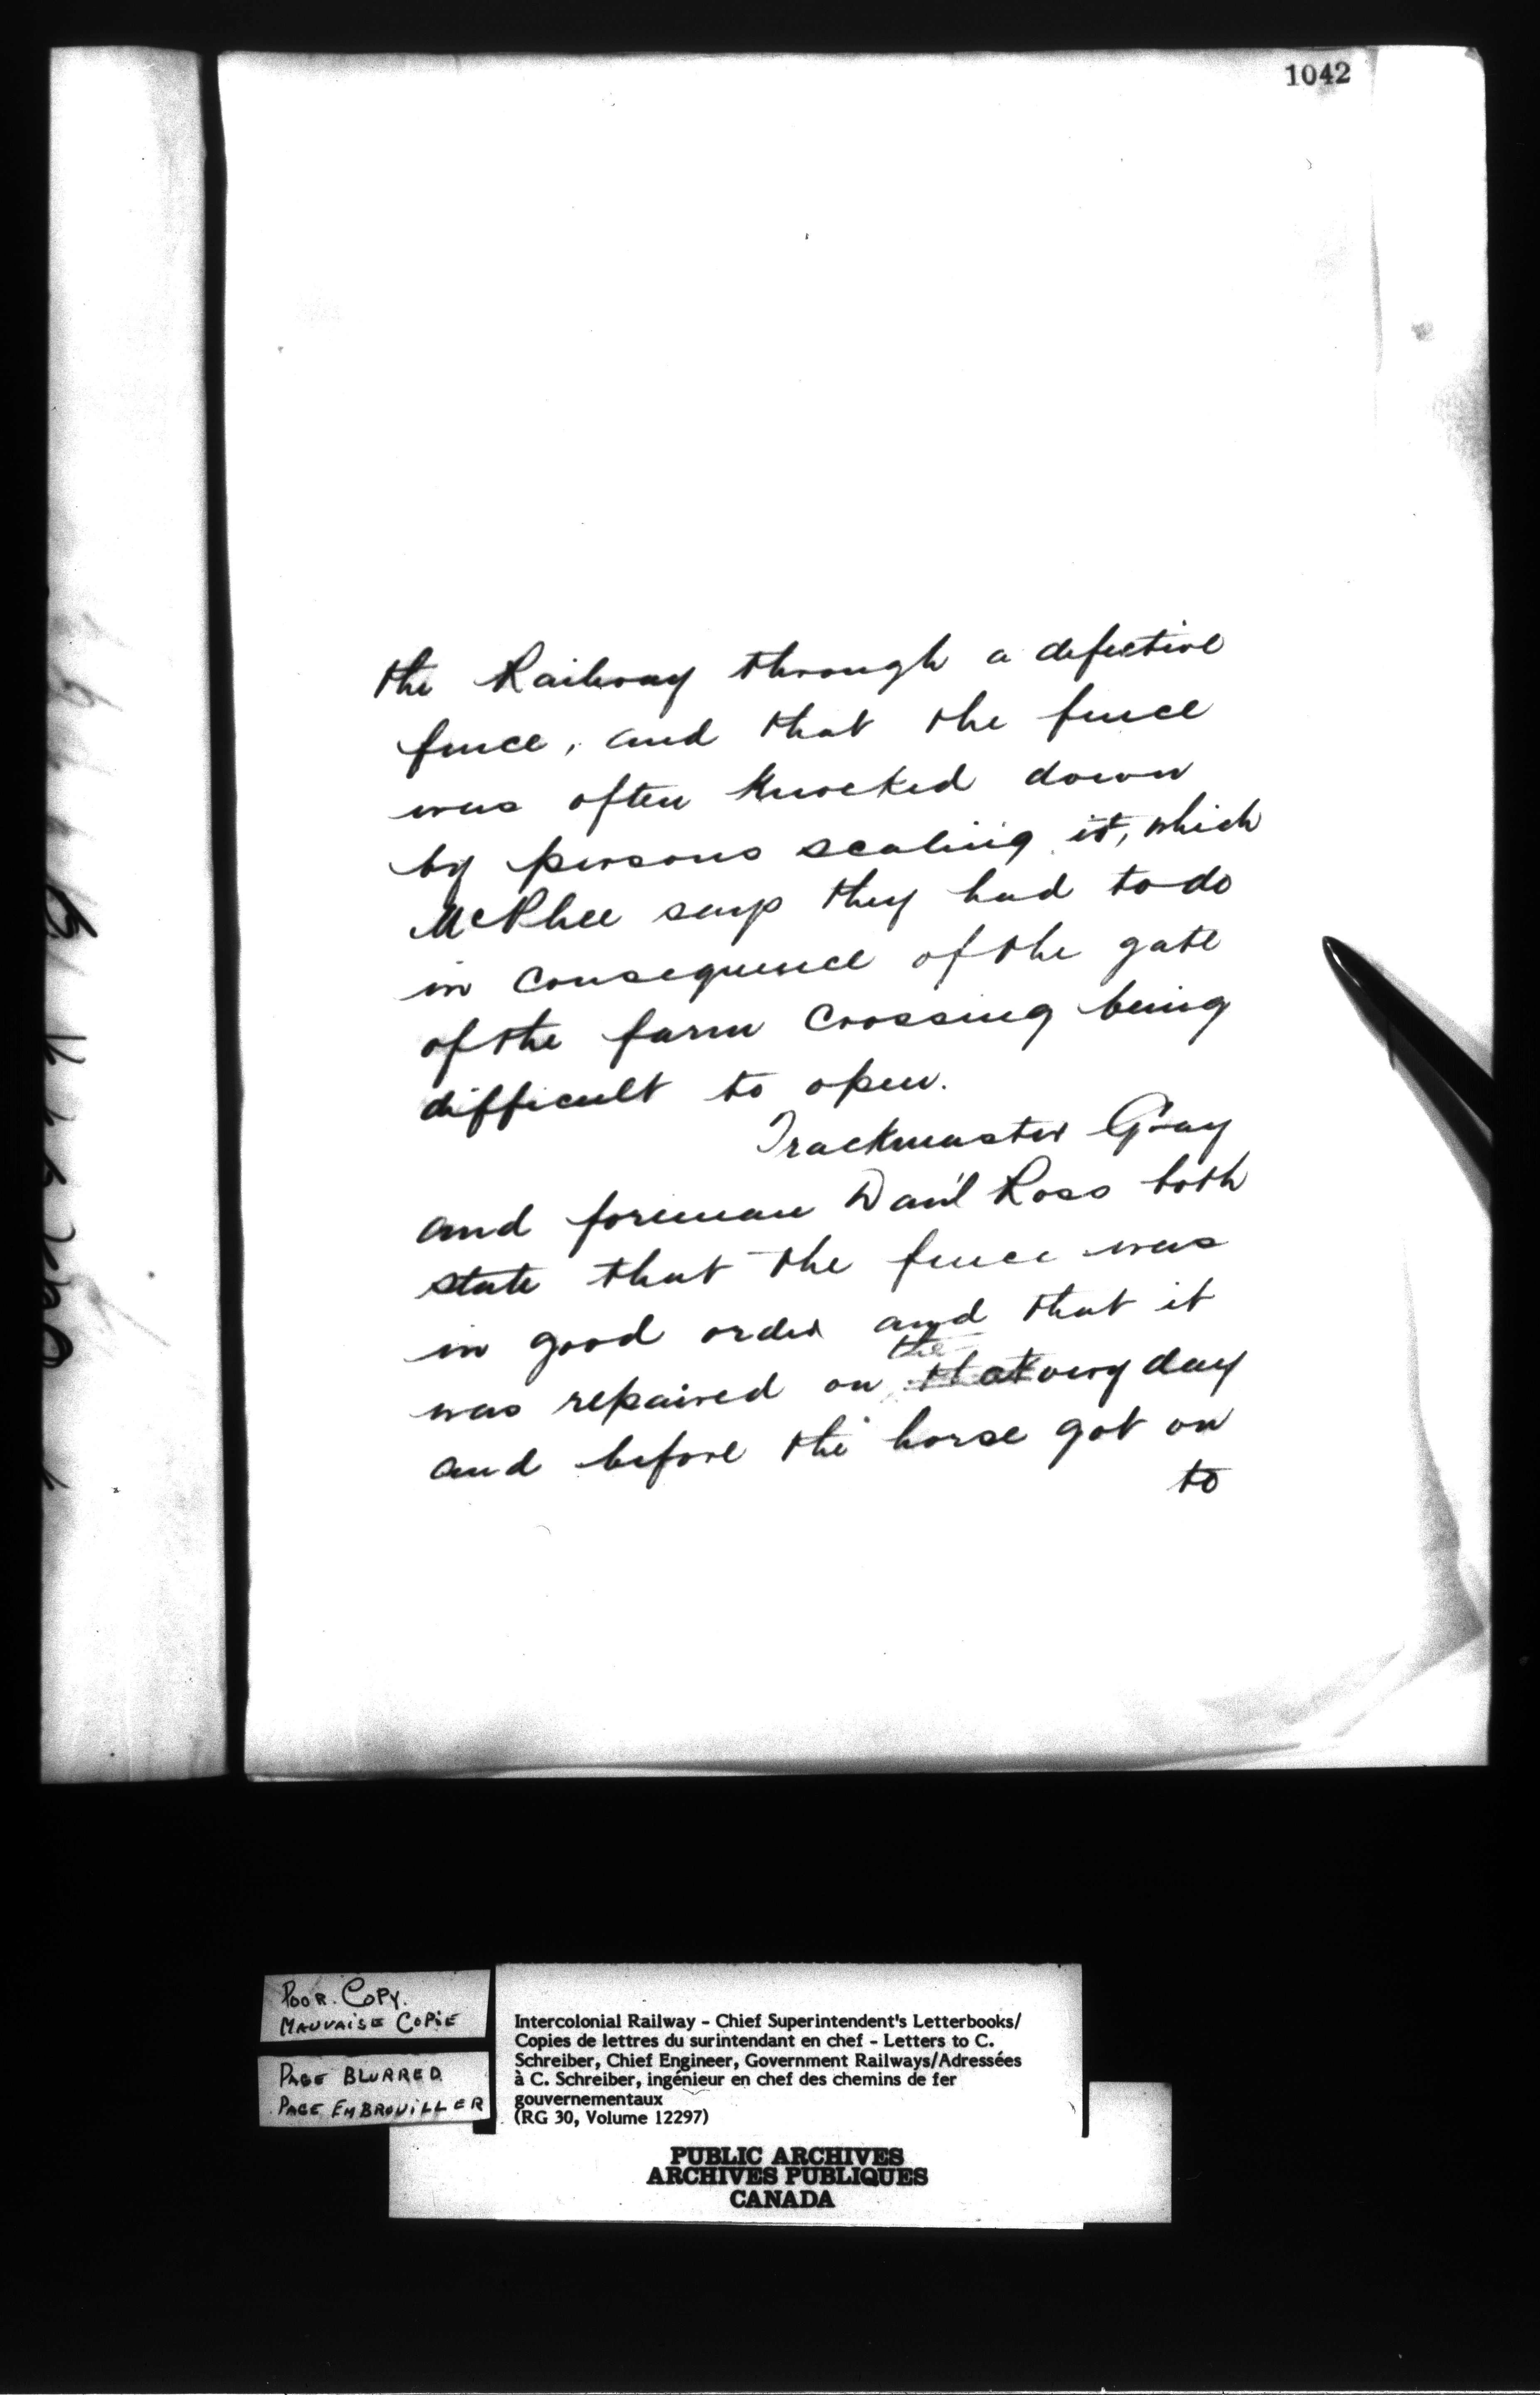 1042
the Railway through a defective
fence, and that the fence
was often knocked down
by persons scaling it, which
McPhee says they had to do
in consequence of the gate
of the farm crossing being
difficult to open.
Trackmaster Gray
and foreman Dan'l Ross both
state that the fence was
in good order and that it
the
was repaired on that very day
and before the horse got on
to
POOR COPY.
MAUVAISE COPIE
PAGE BLURRED
PAGE EMBROUILLER
Intercolonial Railway - Chief Superintendent's Letterbooks/
Copies de lettres du surintendant en chef - Letters to C.
Schreiber, Chief Engineer, Government Railways/Adressées
à C. Schreiber, ingénieur en chef des chemins de fer
gouvernementaux
(RG 30, Volume 12297)
PUBLIC ARCHIVES
ARCHIVES PUBLIQUES
CANADA